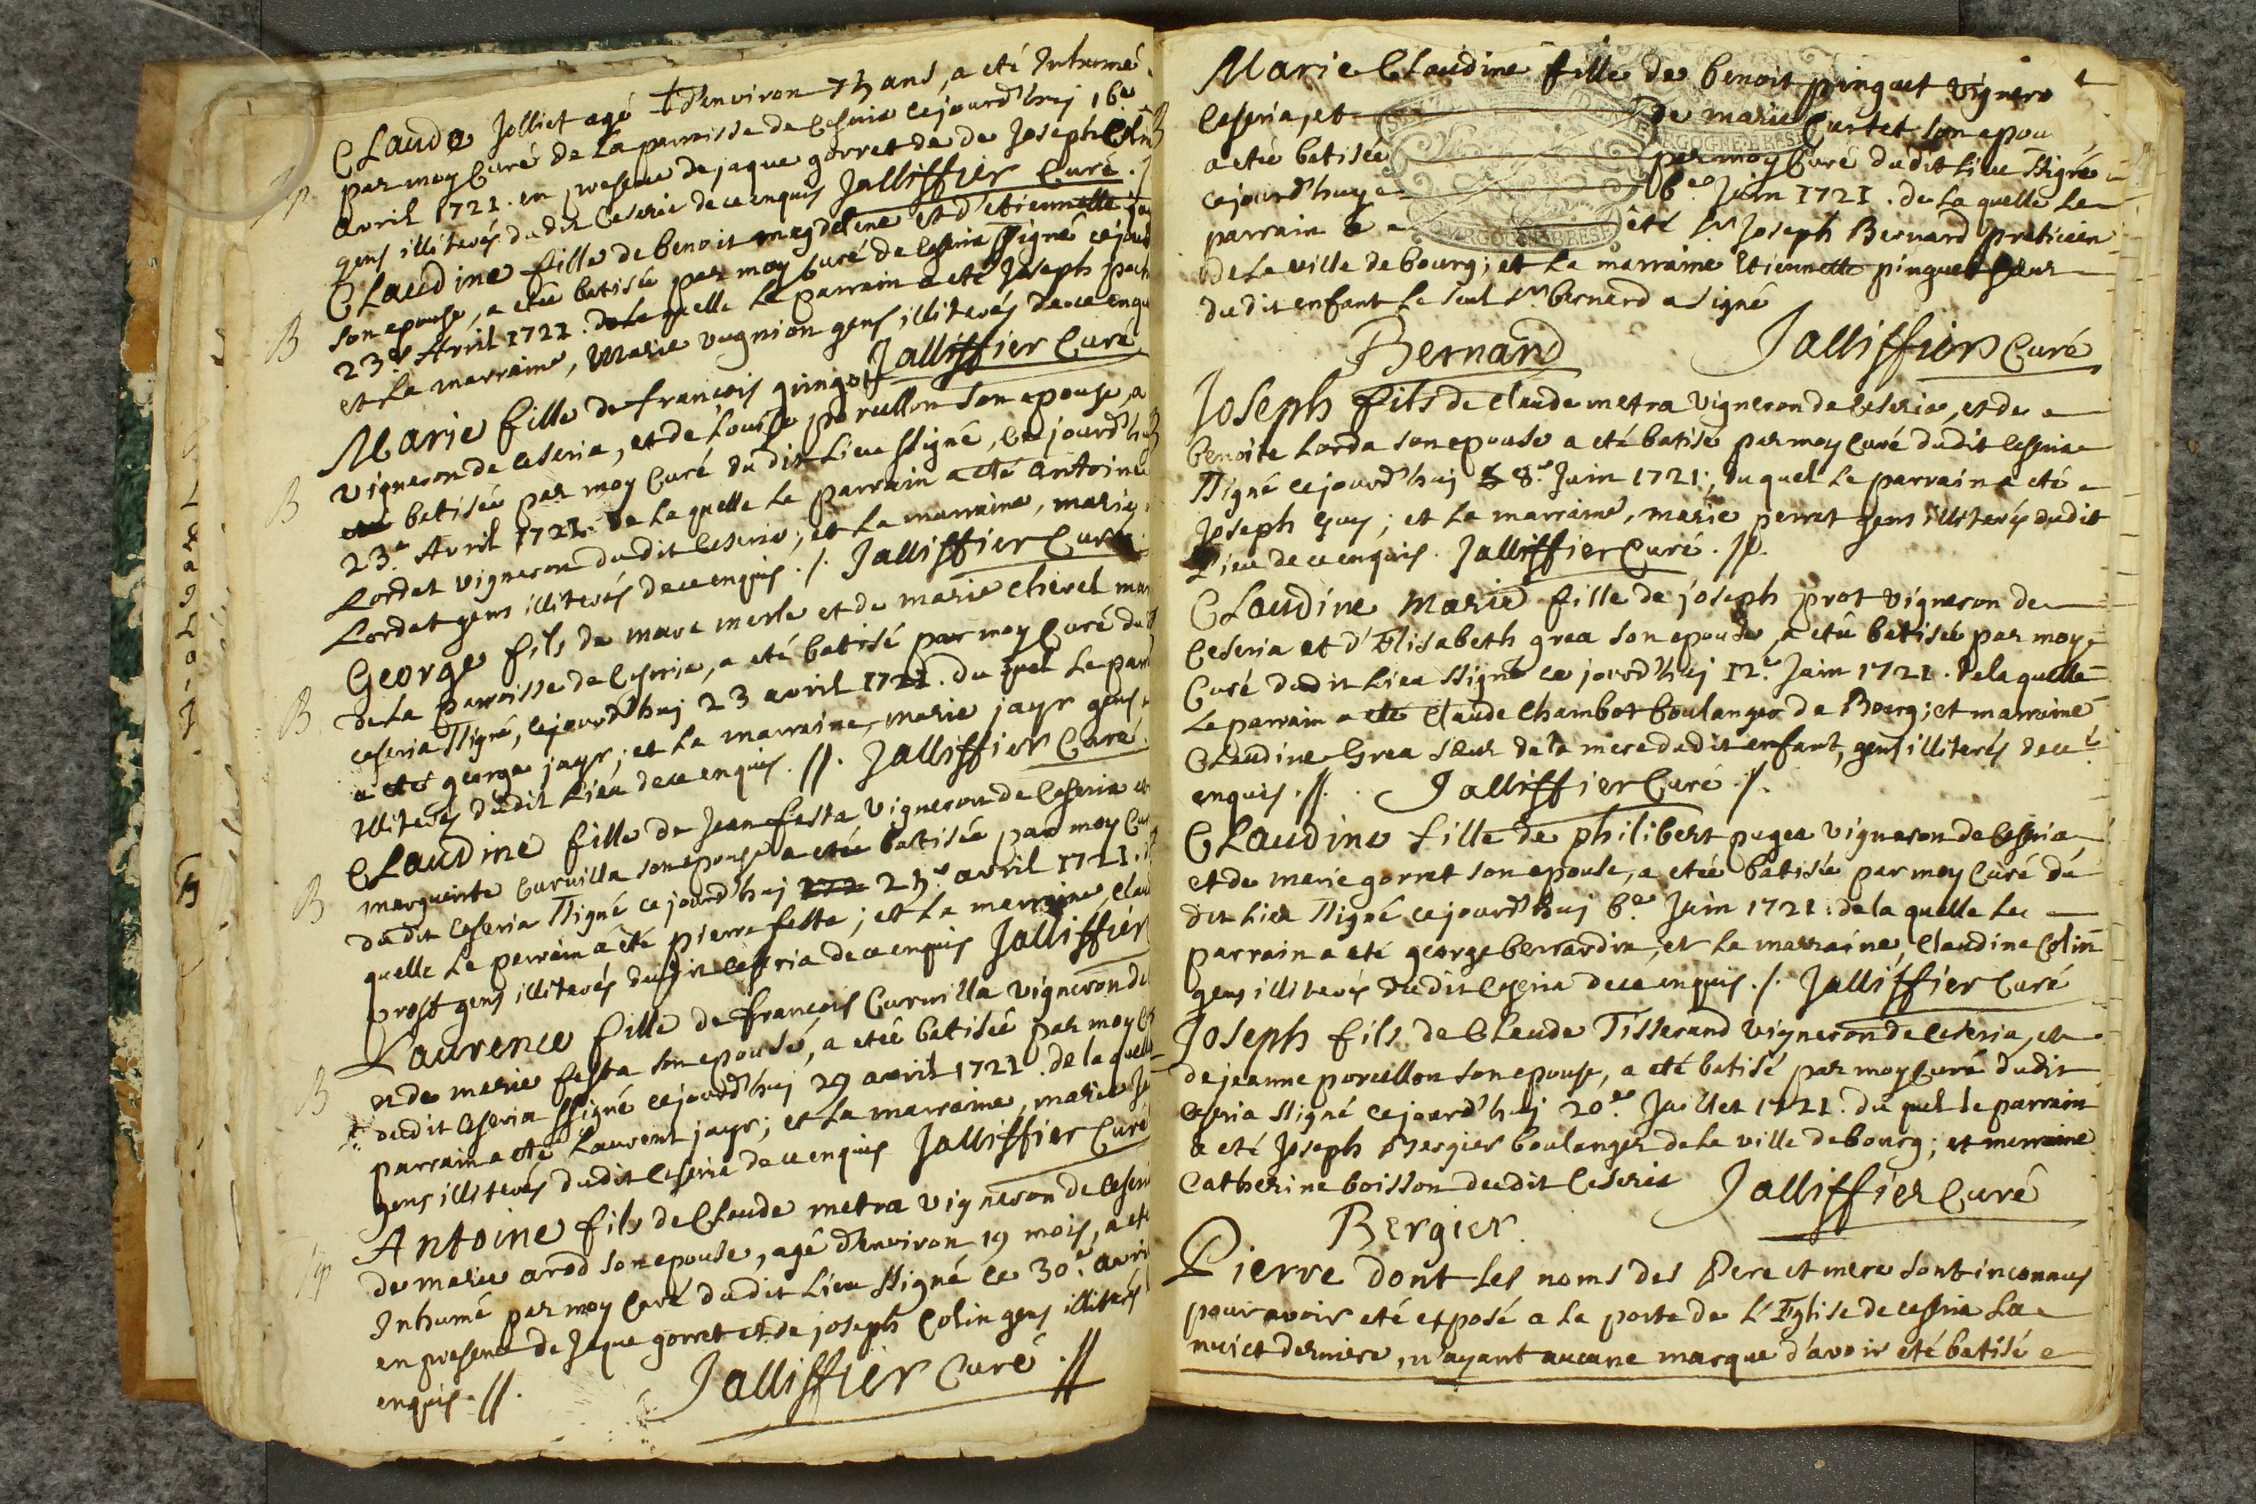 Claude Jolliet agé d'environ 75 ans, a eté Inhumé
par moy Curé de la parroisse de Ceseria cejourd'huj 16e
avril 1721. en presence de jaque gorret de de Joseph Colin
gens illiterés du dit Ceserie de ce enquis Jalliffier Curé ./
B
Claudine fille de benoit magdeleine et d'etiennette
son epouse, a etée batisée par moy Curé de Ceseria ssigné cejourd
23e Avril 1721. de la quelle le parrain a eté Joseph
et la marraine, Marie vugnion gens illiterés de ce enquis
Jalliffier Curé
B
Marie fille de francois guingot
vigneron de Ceseria, et de Louise porcellon son epouse, a
eté batisée par moy Curé du dit Lieu ssigné, Cejourd'huj
23e Avril 1721. de la quelle le parrain a eté antoine
Lordet vigneron du dit Ceserie; et la marraine, marie
Lordet gens illiterés de ce enquis ./. Jalliffier Curé
B
George fils de marc merle et de marie chevel
de la parroisse de Ceseria, a eté batisé par moy Curé du
ceseria ssigné, cejourd'huj 23 avril 1721. du quel le par
a eté george jayr; et la marraine, marie jayr gens
illiterés dudit Lieu de ce enquis .//. Jalliffier Curé
B
Claudine fille de Jean festa Vigneron de Ceseria et
marguerite Curvilla son epouse a etée batisée par moy Cu
du dit Ceseria ssigné ce jourd'huj 25e avril 1721.
quelle le parrain a été pierre feste; et la marraine, Clau
prost gens illiterés dudit ceseria de ce enquis Jalliffier
B
Laurence fille de francois Curvilla vigneron de
et de marie festa son epouse, a etée batisée par moy C
dudit Ceseria ssigné cejourd'huj 29 avril 1721. de la quelle
parrain a eté Laurent jayr; et la marraine, marie
gens illiterés dudit Ceserie de ce enquis Jalliffier Curé
Antoine fils de Claude metra vigneron de Ceseri
de marie arod son epouse, agé d'environ 19 mois, a eté
Inhumé par moy Curé dudit Lieu ssigné ce 30e avri
en presence de Jaque gorret et de joseph Colin gens illiterés
enquis .//. Jalliffier Curé .//
Marie Claudine fille de benoit pinguet vignero
Ceseria, et de marie Curtet son epou
a etée batisée par moy Curé dudit Lieu ssigné
cejourd'huy 6e Juin 1721. de la quelle le
parrain a eté Sr Joseph Bernard praticien
de la ville de bourg; et la marraine Etiennette pinguet sœur
dudit enfant le seul Sr bernard a signé
Bernard Jalliffier Curé
Joseph fils de Claude metra vigneron de Ceserie, et de
benoite Lorda son epouse a eté batisé par moy Curé dudit Ceseria
ssigné cejourd'huj 8e Juin 1721; du quel le parrain a eté
Joseph Guy; et la marraine, marie perret gens illiterés dudit
Lieu de ce enquis. Jalliffier Curé .//.
Claudine Marie fille de joseph prot vigneron de
Ceseria et d'Elisabeth grea son epouse, a etée batisée par moy
Curé dudit Lieu ssigné ce jourd'huj 12e Juin 1721. de la quelle
le parrain a eté Claude Chambot boulanger de Bourg; et marraine
Claudine Grea sœur de la mere dudit enfant, gens illiterés de ce
enquis .//. Jalliffier Curé ./.
Claudine fille de philibert puget vigneron de Ceseria,
et de marie gorret son epouse, a etée batisée par moy Curé du
dit Lieu ssigné cejourd'huj 6e Juin 1721. de la quelle le
parrain a eté george berrardin, et la marraine Claudine Colin
gens illiterés dudit Ceseria de ce enquis ./. Jalliffier Curé
Joseph fils de Claude Tisserand vigneron de Ceseria, et
de jeanne porcellon son epouse, a eté batisé par moy Curé dudit
Ceseria ssigné cejourd'huj 20e Juillet 1721. du quel le parrain
a eté Joseph Bergier boulanger de la ville de bourg; et marraine
Catherine boisson dudit Ceserie Jalliffier Curé
Bergier.
Pierre dont les noms des Pere et mere sont inconnus
pour avoir eté exposé a la porte de L'Eglise de ceseria la
nuict derniere, n'ayant aucune marque d'avoir eté batisé